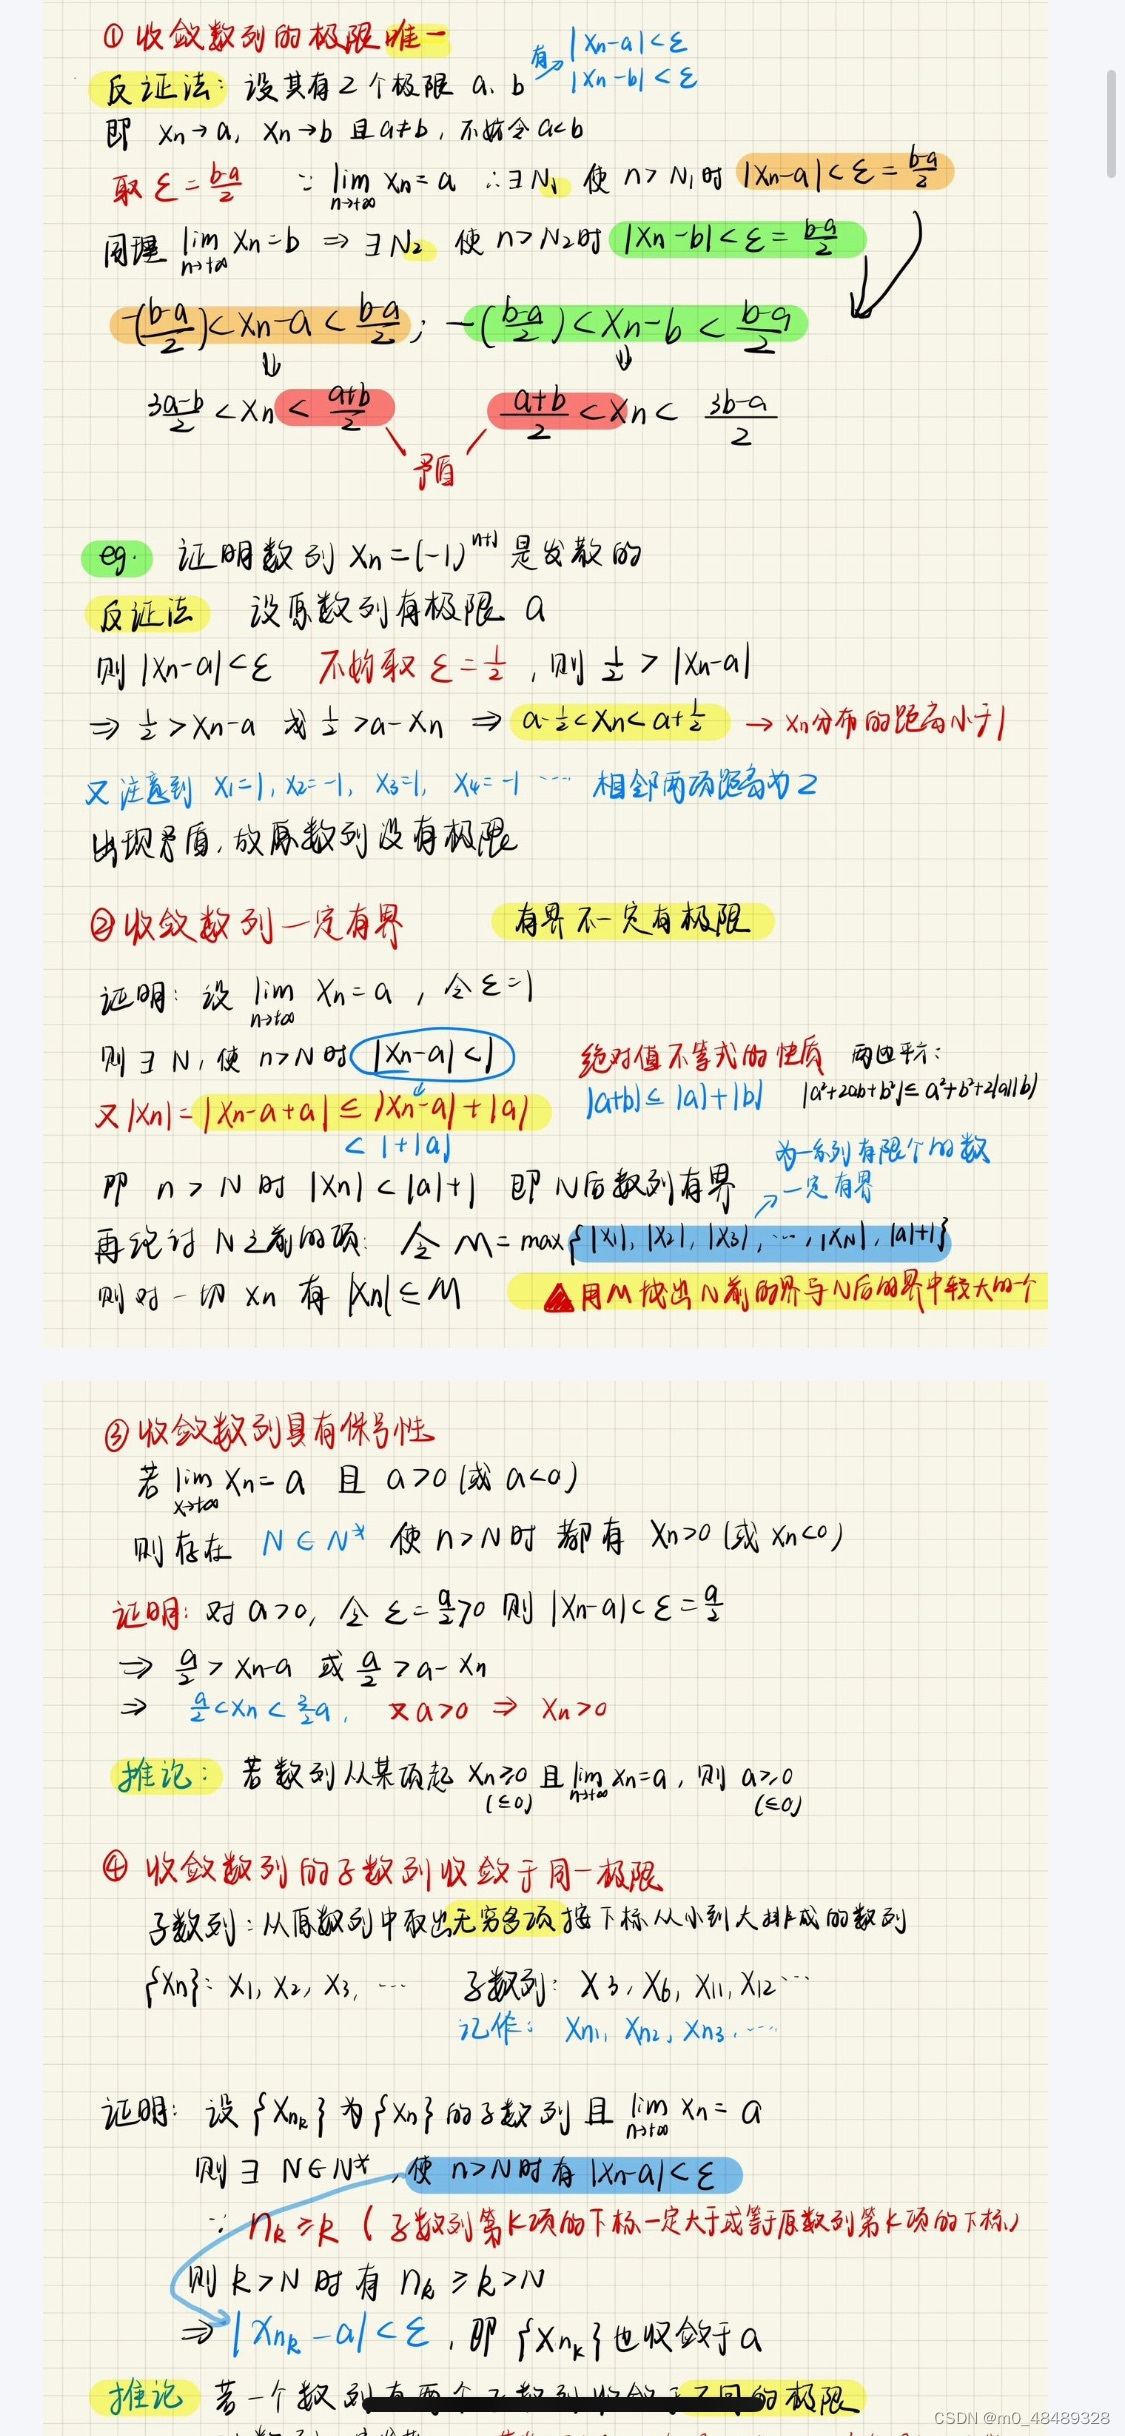 ① 收敛数列的极限唯一
有 |Xn-a|<ε
|Xn-b|<ε
反证法: 设其有2个极限 a、b
即 Xn→a, Xn→b 且a≠b, 不妨令a<b
取 ε=(b-a)/2 ∵ lim n→+∞ Xn=a ∴∃N₁ 使 n>N₁时 |Xn-a|<ε=(b-a)/2
同理 lim n→+∞ Xn=b ⇒ ∃N₂ 使 n>N₂时 |Xn-b|<ε=(b-a)/2
-((b-a)/2)<Xn-a<(b-a)/2; -((b-a)/2)<Xn-b<(b-a)/2
(3a-b)/2<Xn<(a+b)/2 (a+b)/2<Xn<(3b-a)/2
矛盾
eg. 证明数列 Xn=(-1)^(n+1) 是发散的
反证法 设原数列有极限 a
则 |Xn-a|<ε 不妨取 ε=1/2, 则 1/2>|Xn-a|
⇒ 1/2>Xn-a 或 1/2>a-Xn ⇒ a-1/2<Xn<a+1/2 → Xn分布的距离小于1
又注意到 X₁=1, X₂=-1, X₃=1, X₄=-1 ⋯ 相邻两项距离为2
出现矛盾, 故原数列没有极限
② 收敛数列一定有界 有界不一定有极限
证明: 设 lim n→+∞ Xn=a, 令ε=1
则∃N, 使 n>N时 |Xn-a|<1 绝对值不等式的性质 两边平方:
又|Xn|=|Xn-a+a|≤|Xn-a|+|a| |a+b|≤|a|+|b| |a²+2ab+b²|≤a²+b²+2|a||b|
<1+|a|
为一系列有限个的数
一定有界
即 n>N时 |Xn|<|a|+1 即N后数列有界
再讨论N之前的项: 令M=max{|X₁|, |X₂|, |X₃|, ⋯, |XN|, |a|+1}
则对一切Xn有|Xn|≤M ▲用M找出N前的界与N后的界中较大的一个
③ 收敛数列具有保号性
若 lim x→+∞ Xn=a 且 a>0 (或 a<0)
则存在 N∈N* 使n>N时都有 Xn>0 (或 Xn<0)
证明: 对a>0, 令ε=a/2>0 则 |Xn-a|<ε=a/2
⇒ a/2>Xn-a 或 a/2>a-Xn
⇒ a/2<Xn<3/2 a, 又a>0 ⇒ Xn>0
推论: 若数列从某项起 Xn≥0 且 lim n→+∞ Xn=a, 则 a≥0
(≤0) (≤0)
④ 收敛数列的子数列收敛于同一极限
子数列: 从原数列中取出无穷多项按下标从小到大排成的数列
{Xn}: X₁, X₂, X₃, ⋯ 子数列: X₃, X₆, X₁₁, X₁₂⋯
记作: Xn₁, Xn₂, Xn₃, ⋯
证明: 设{Xnₖ}为{Xn}的子数列且 lim n→+∞ Xn=a
则∃ N∈N*, 使 n>N时有 |Xn-a|<ε
∵ nₖ≥k (子数列第k项的下标一定大于或等于原数列第k项的下标)
则 k>N 时有 nₖ≥k>N
⇒ |Xnₖ-a|<ε, 即{Xnₖ}也收敛于a
推论 若一个数列有两个子数列收敛于不同的极限
CSDN @m0_48489328